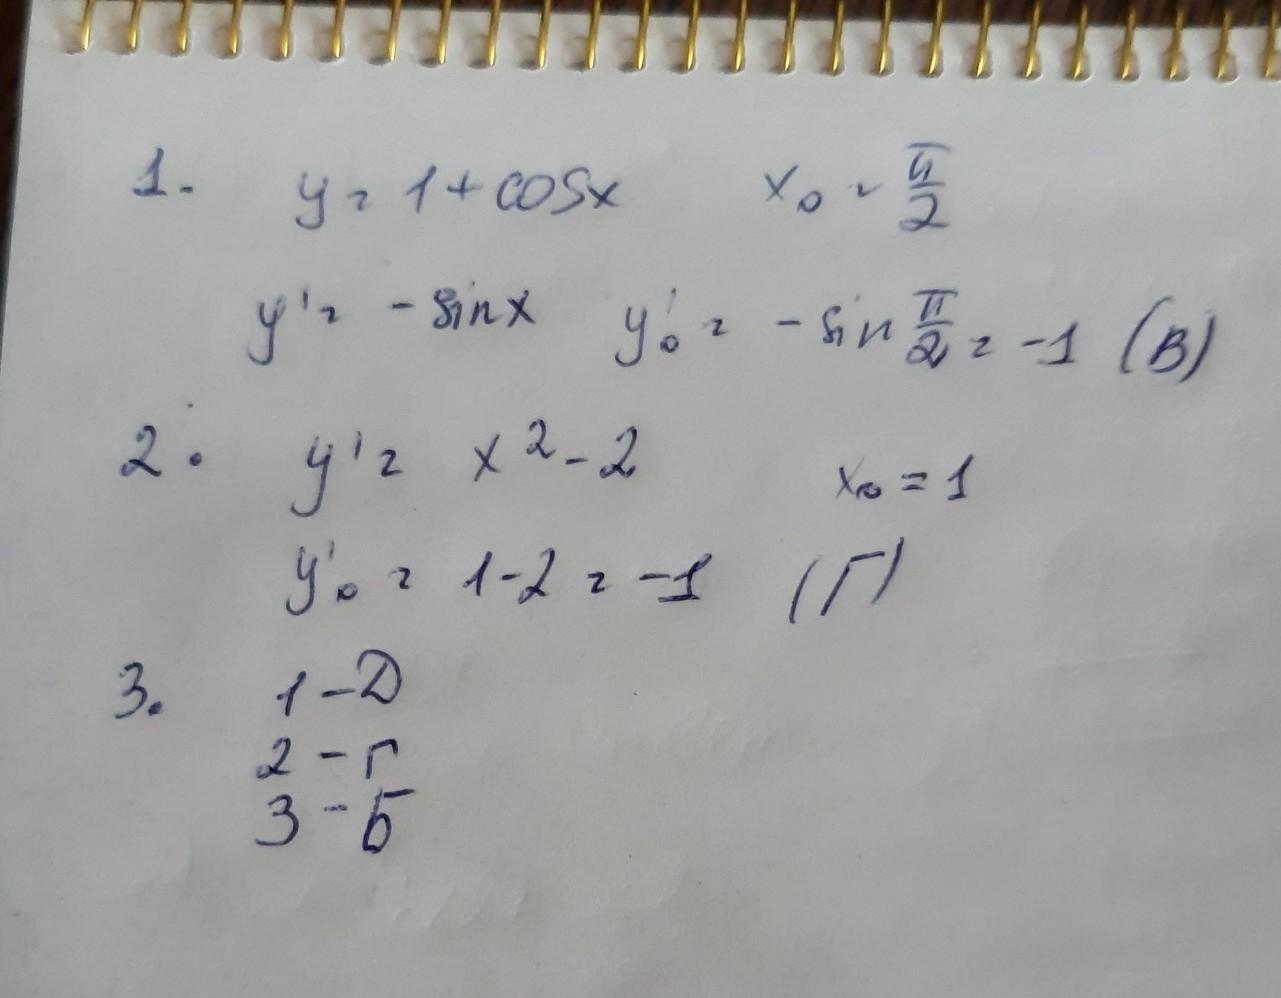 1. y = 1 + cosx x₀ = π/2
y' = - sinx y'₀ = - sin π/2 = -1 (В)
2. y' = x² - 2 x₀ = 1
y'₀ = 1 - 2 = -1 (Г)
3. 1 - Д
2 - Г
3 - Б